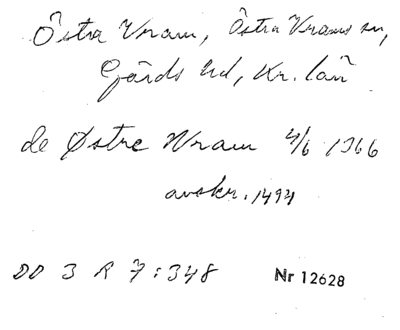 Östra Vram, Östra Vrams sn,
Gärds hd, Kr. län
de Østre Wram 4/6 1366
avskr. 1494
DD 3 R 7:348 Nr 12628